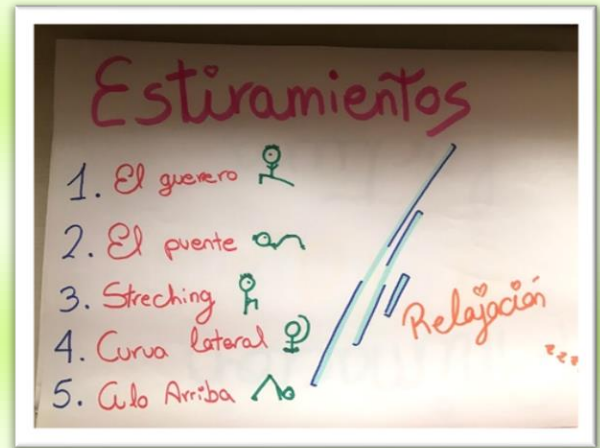 Estiramientos
1. El guerero
2. El puente
3. Streching
4. Curva lateral
5. Culo Arriba
Relajación
zzz